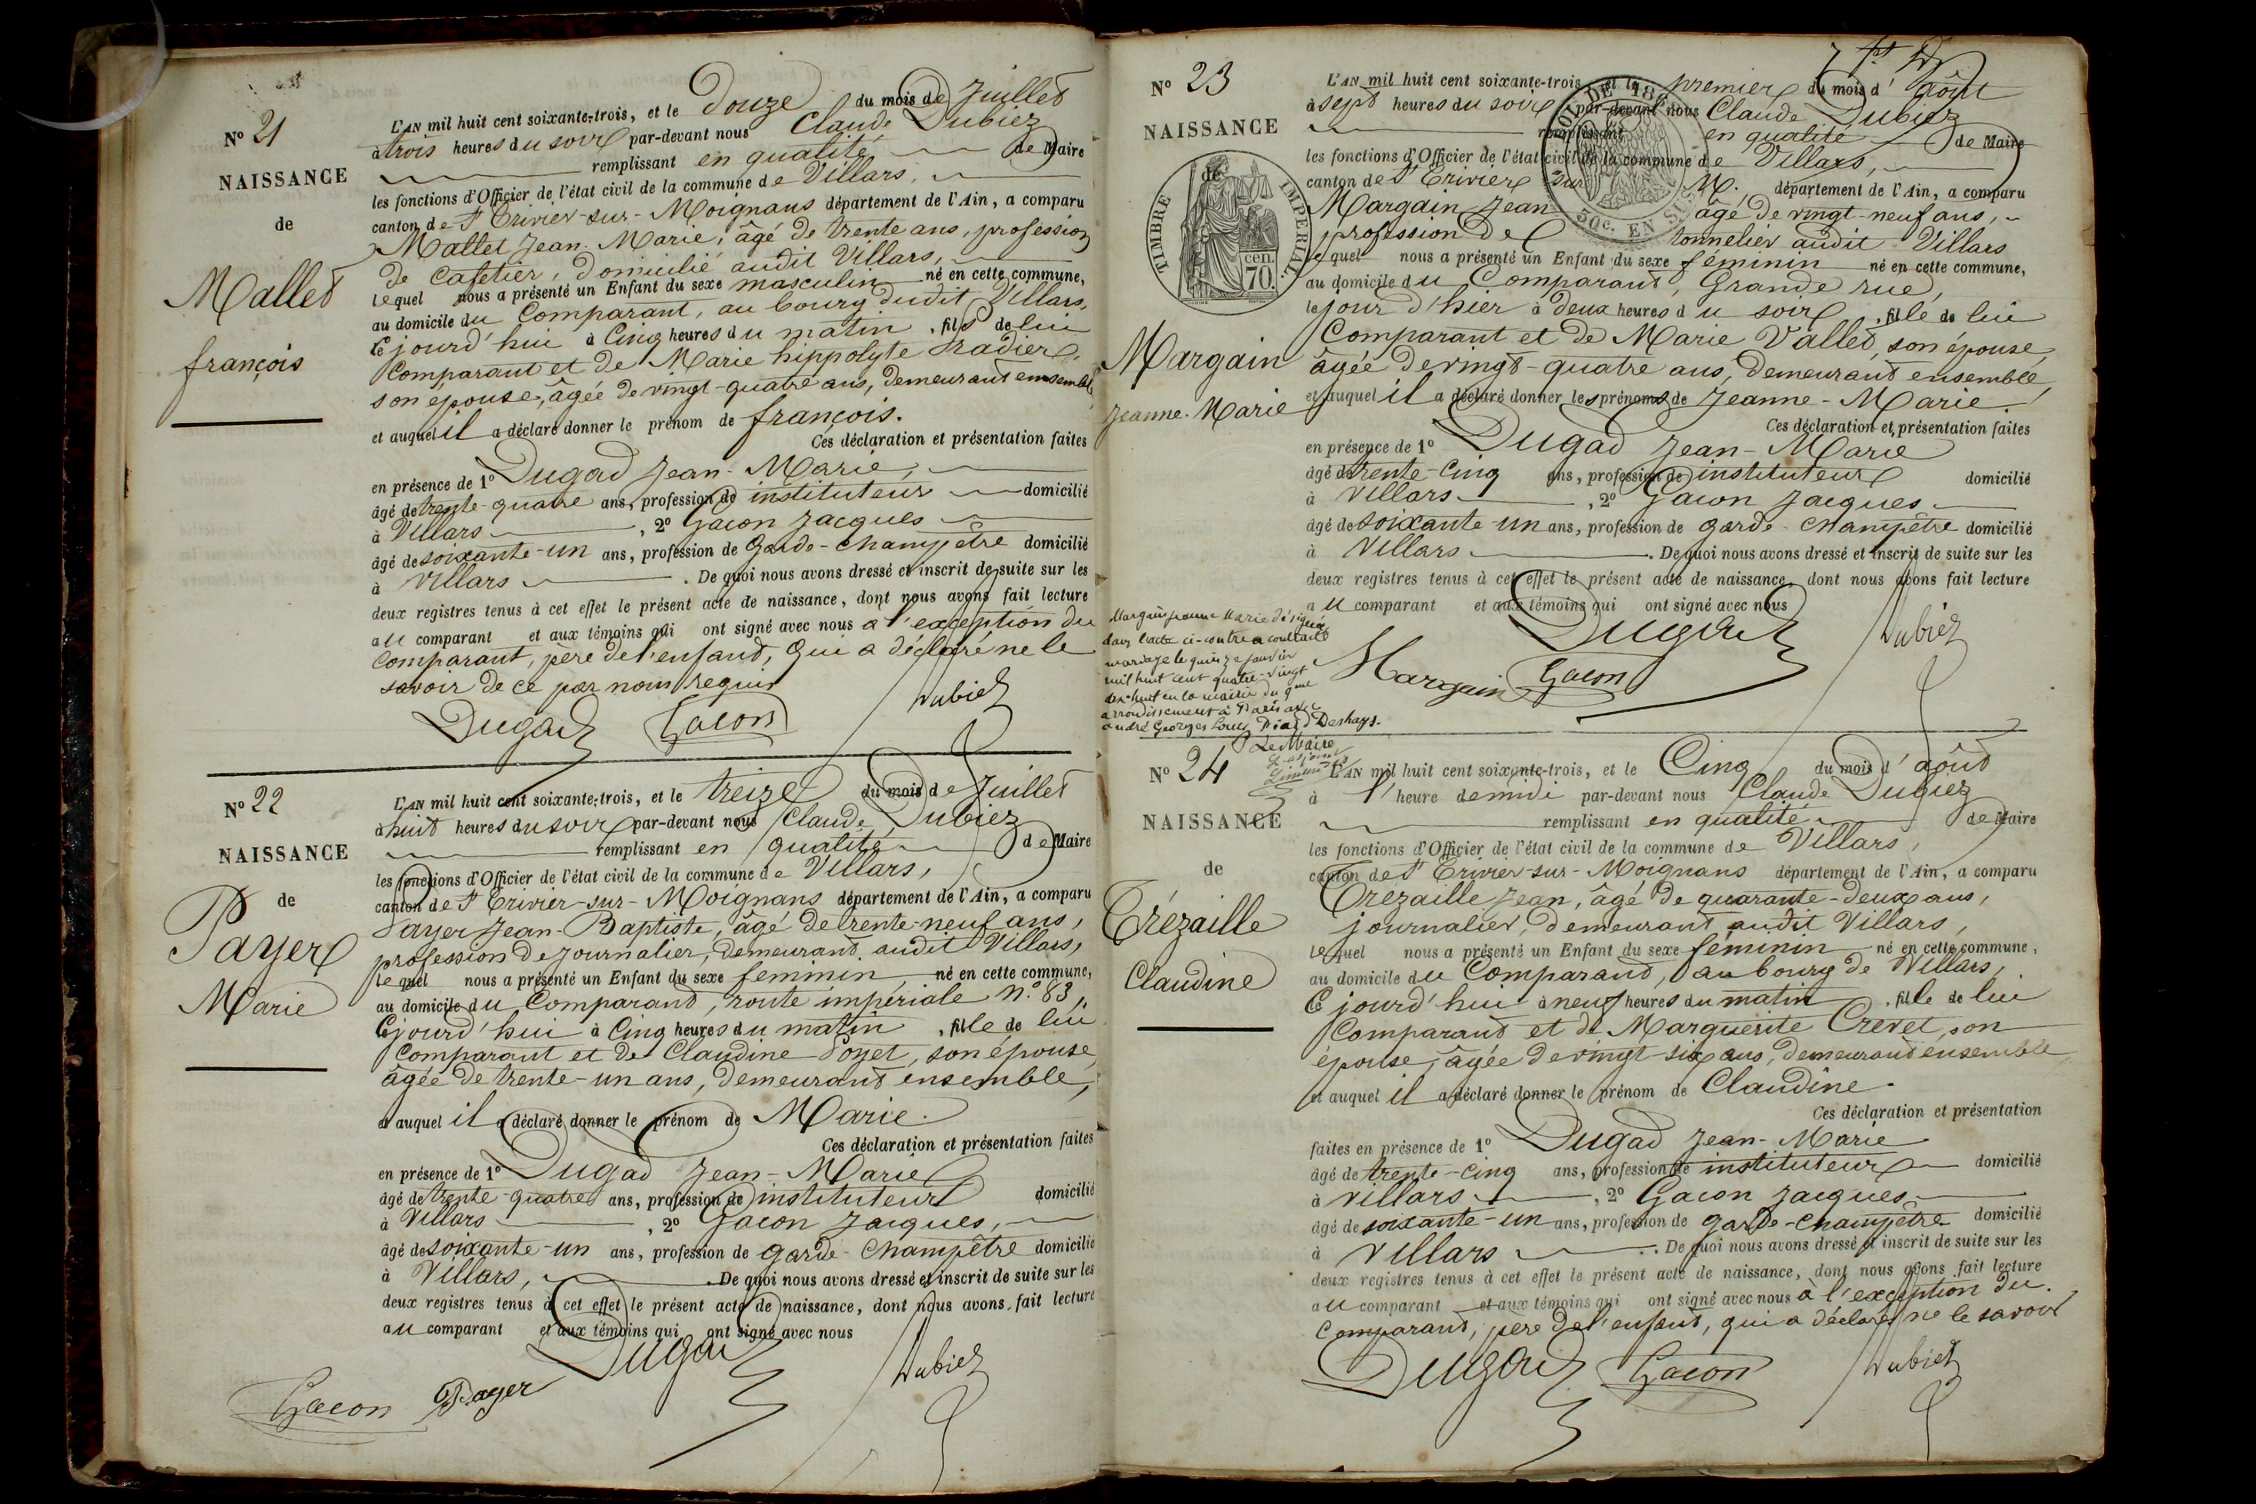 Nº 21
NAISSANCE
de
Mallet
françois
L'AN mil huit cent soixante-trois, et le douze du mois de Juillet
à trois heures du soir par-devant nous Claude Dubiez
remplissant en qualité de Maire
les fonctions d'Officier de l'état civil de la commune de Villars,
canton de St Trivier-sur-Moignans département de l'Ain, a comparu
Mallet Jean-Marie, âgé de trente ans, profession
de cafetier, domicilié audit Villars,
lequel nous a présenté un Enfant du sexe masculin né en cette commune,
au domicile du Comparant, au bourg dudit Villars,
Cejourd'hui à Cinq heures du matin, fils de lui
Comparant et de Marie hippolyte Radier,
son épouse, âgée de vingt-quatre ans, demeurant ensemble
et auquel il a déclaré donner le prénom de françois.
Ces déclaration et présentation faites
en présence de 1º Dugad Jean-Marie,
âgé de trente-quatre ans, profession de instituteur domicilié
à Villars, 2º Gacon Jacques
âgé de soixante-un ans, profession de Garde-champêtre domicilié
à Villars. De quoi nous avons dressé et inscrit de suite sur les
deux registres tenus à cet effet le présent acte de naissance, dont nous avons fait lecture
au comparant et aux témoins qui ont signé avec nous a l'exception du
Comparant, père de l'enfant, qui a déclaré ne le
savoir de ce par nous requis
Dugad Gacon Dubiez
Nº 22
NAISSANCE
de
Payer
Marie
L'AN mil huit cent soixante-trois, et le treize du mois de Juillet
à huit heures du soir par-devant nous Claude Dubiez
remplissant en qualité de Maire
les fonctions d'Officier de l'état civil de la commune de Villars,
canton de St Trivier-sur-Moignans département de l'Ain, a comparu
Payer Jean-Baptiste, âgé de trente-neuf ans,
profession de journalier, demeurant audit Villars,
lequel nous a présenté un Enfant du sexe féminin né en cette commune,
au domicile du Comparant, route impériale Nº 83,
Cejourd'hui à Cinq heures du matin, fille de lui
Comparant et de Claudine Poyet, son épouse
âgée de trente-un ans, demeurant ensemble,
et auquel il a déclaré donner le prénom de Marie.
Ces déclaration et présentation faites
en présence de 1º Dugad Jean-Marie
âgé de trente-quatre ans, profession de instituteur domicilié
à Villars, 2º Gacon Jacques,
âgé de soixante-un ans, profession de garde-champêtre domicilié
à Villars, De quoi nous avons dressé et inscrit de suite sur les
deux registres tenus à cet effet le présent acte de naissance, dont nous avons fait lecture
au comparant et aux témoins qui ont signé avec nous
Dugad Dubiez
Gacon Payer
Nº 23
NAISSANCE
de
TIMBRE IMPÉRIAL
70 cen.
50c. EN SUS
Margain
Jeanne-Marie
L'AN mil huit cent soixante-trois, et le premier du mois d'août
à sept heures du soir par-devant nous Claude Dubiez
remplissant en qualité de Maire
les fonctions d'Officier de l'état civil de la commune de Villars,
canton de St Trivier sur M. département de l'Ain, a comparu
Margain Jean âgé de vingt-neuf ans,
profession de tonnelier audit Villars
lequel nous a présenté un Enfant du sexe féminin né en cette commune,
au domicile du Comparant, Grande rue,
le jour d'hier à deux heures du soir, fille de lui
Comparant et de Marie Vallet, son épouse,
âgée de vingt-quatre ans, demeurant ensemble,
et auquel il a déclaré donner les prénoms de Jeanne-Marie.
Ces déclaration et présentation faites
en présence de 1º Dugad Jean-Marie
âgé de trente-cinq ans, profession de instituteur domicilié
à Villars, 2º Gacon Jacques
âgé de soixante-un ans, profession de garde-champêtre domicilié
à Villars. De quoi nous avons dressé et inscrit de suite sur les
deux registres tenus à cet effet le présent acte de naissance, dont nous avons fait lecture
au comparant et aux témoins qui ont signé avec nous
Dugad Dubiez
Margain Gacon
Margain Jeanne Marie désignée
dans l'acte ci-contre a contracté
mariage le quinze janvier
mil huit cent quatre-vingt
dix-huit en la mairie du
arrondissement à Paris avec
André Georges Louis Deshays.
Le Maire
Nº 24
NAISSANCE
de
Trézaille
Claudine
L'AN mil huit cent soixante-trois, et le Cinq du mois d'août
à l'heure de midi par-devant nous Claude Dubiez
remplissant en qualité de Maire
les fonctions d'Officier de l'état civil de la commune de Villars,
canton de St Trivier-sur-Moignans département de l'Ain, a comparu
Trézaille Jean, âgé de quarante-deux ans,
journalier, demeurant audit Villars,
lequel nous a présenté un Enfant du sexe féminin né en cette commune,
au domicile du Comparant, au bourg de Villars,
Cejourd'hui à neuf heures du matin, fille de lui
Comparant et de Marguerite Crevet, son
épouse, âgée de vingt-six ans, demeurant ensemble
et auquel il a déclaré donner le prénom de Claudine.
Ces déclaration et présentation
faites en présence de 1º Dugad Jean-Marie
âgé de trente-cinq ans, profession de instituteur domicilié
à Villars, 2º Gacon Jacques
âgé de soixante-un ans, profession de garde-champêtre domicilié
à Villars. De quoi nous avons dressé et inscrit de suite sur les
deux registres tenus à cet effet le présent acte de naissance, dont nous avons fait lecture
au comparant et aux témoins qui ont signé avec nous à l'exception du
Comparant, père de l'enfant, qui a déclaré ne le savoir
Dugad Gacon Dubiez